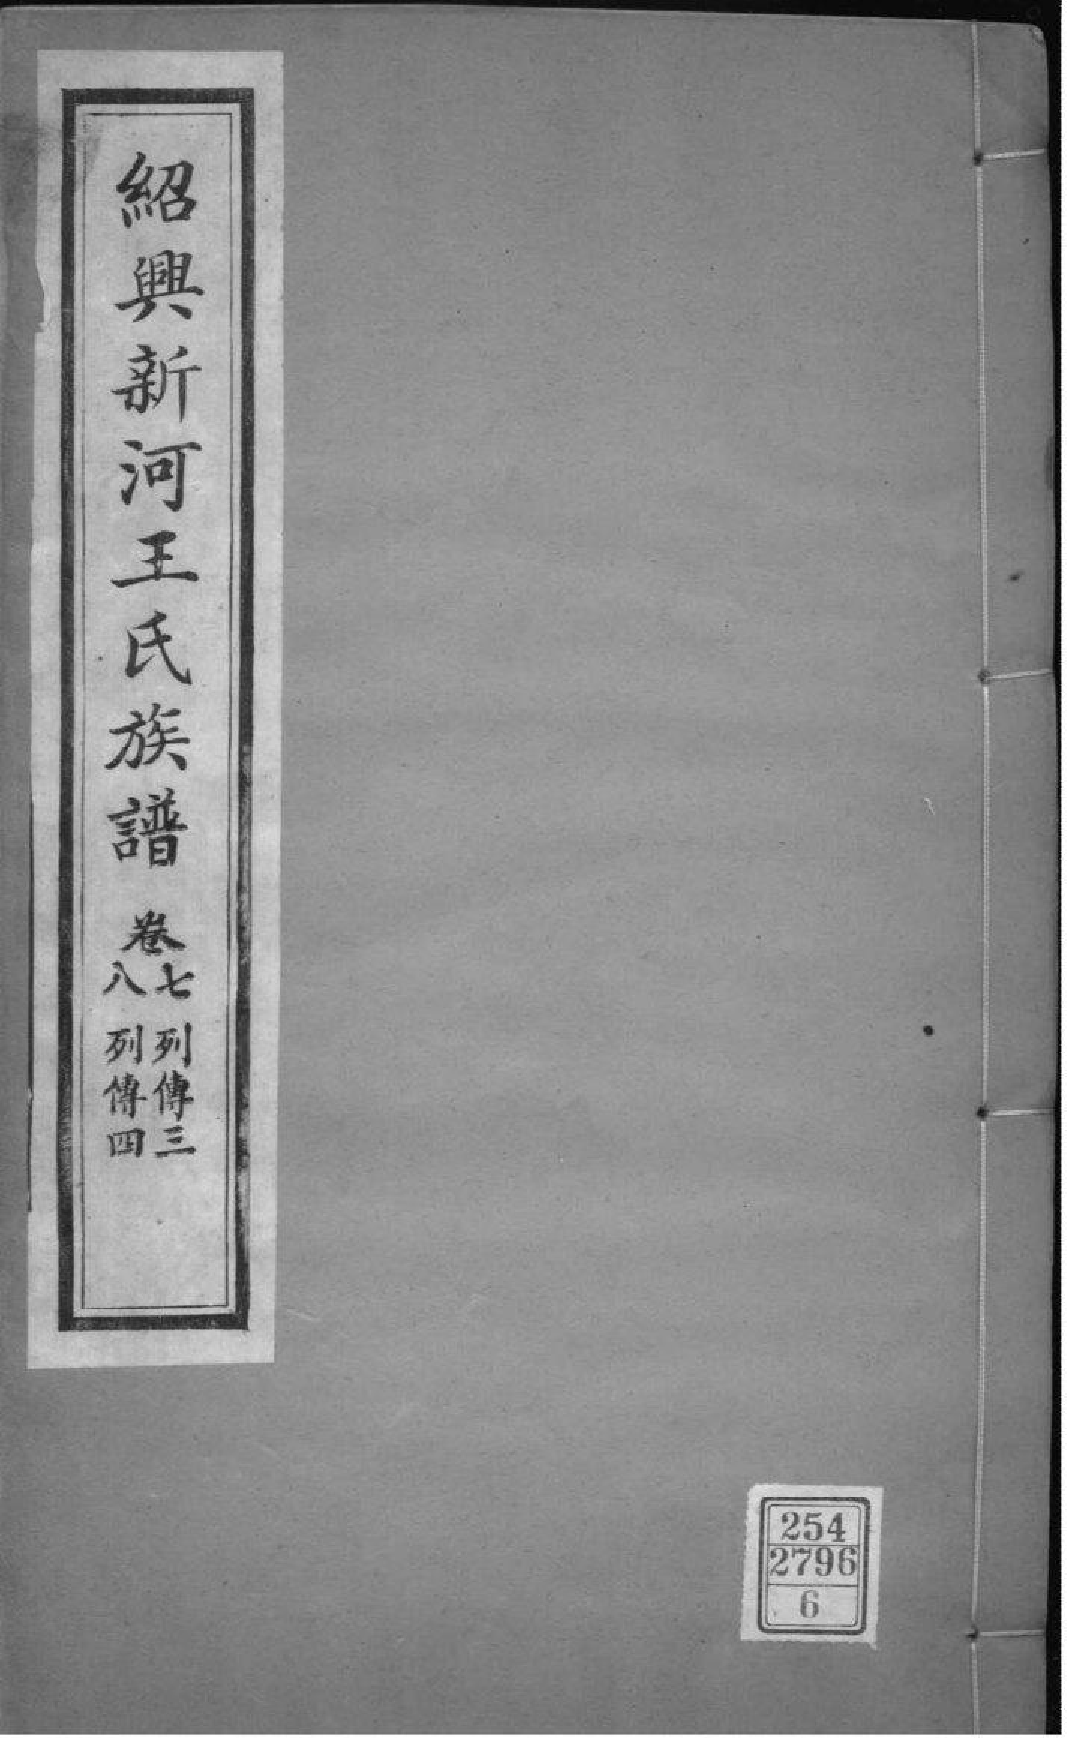 紹興新河王氏族譜
卷
七 列傳三
八 列傳四
254
2796
6